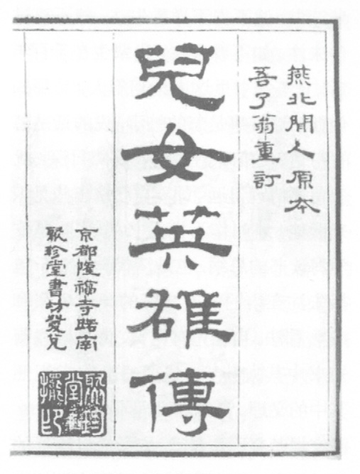 燕北閒人原本
吾了翁重訂
兒女英雄傳
京都隆福寺路南
聚珍堂書坊發兌
聚珍堂擺印